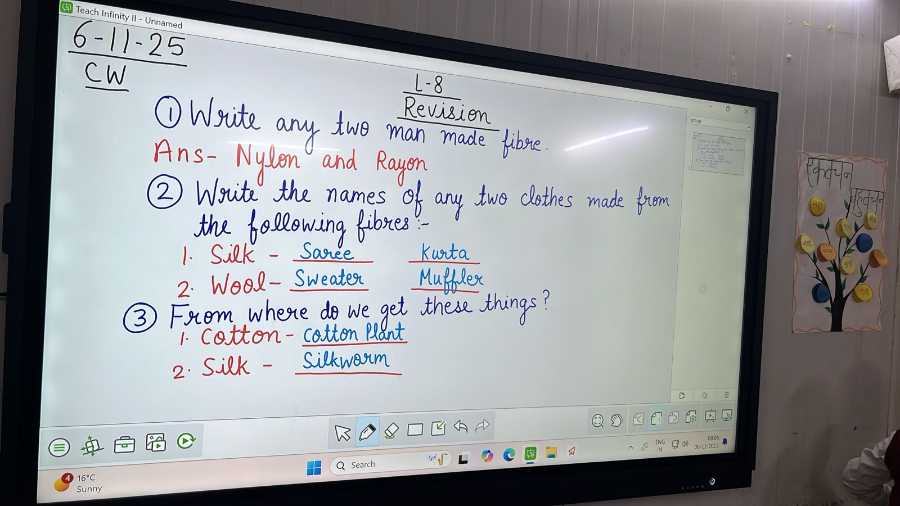 Teach Infinity II - Unnamed
6-11-25
CW
L-8
Revision
① Write any two man made fibre.
Ans- Nylon and Rayon
② Write the names of any two clothes made from
the following fibres :-
1. Silk - Saree Kurta
2. Wool - Sweater Muffler
③ From where do we get these things?
1. Cotton - Cotton Plant
2. Silk - Silkworm
Search
ENG
IN
4
16°C
Sunny
एकवचन
बहुवचन